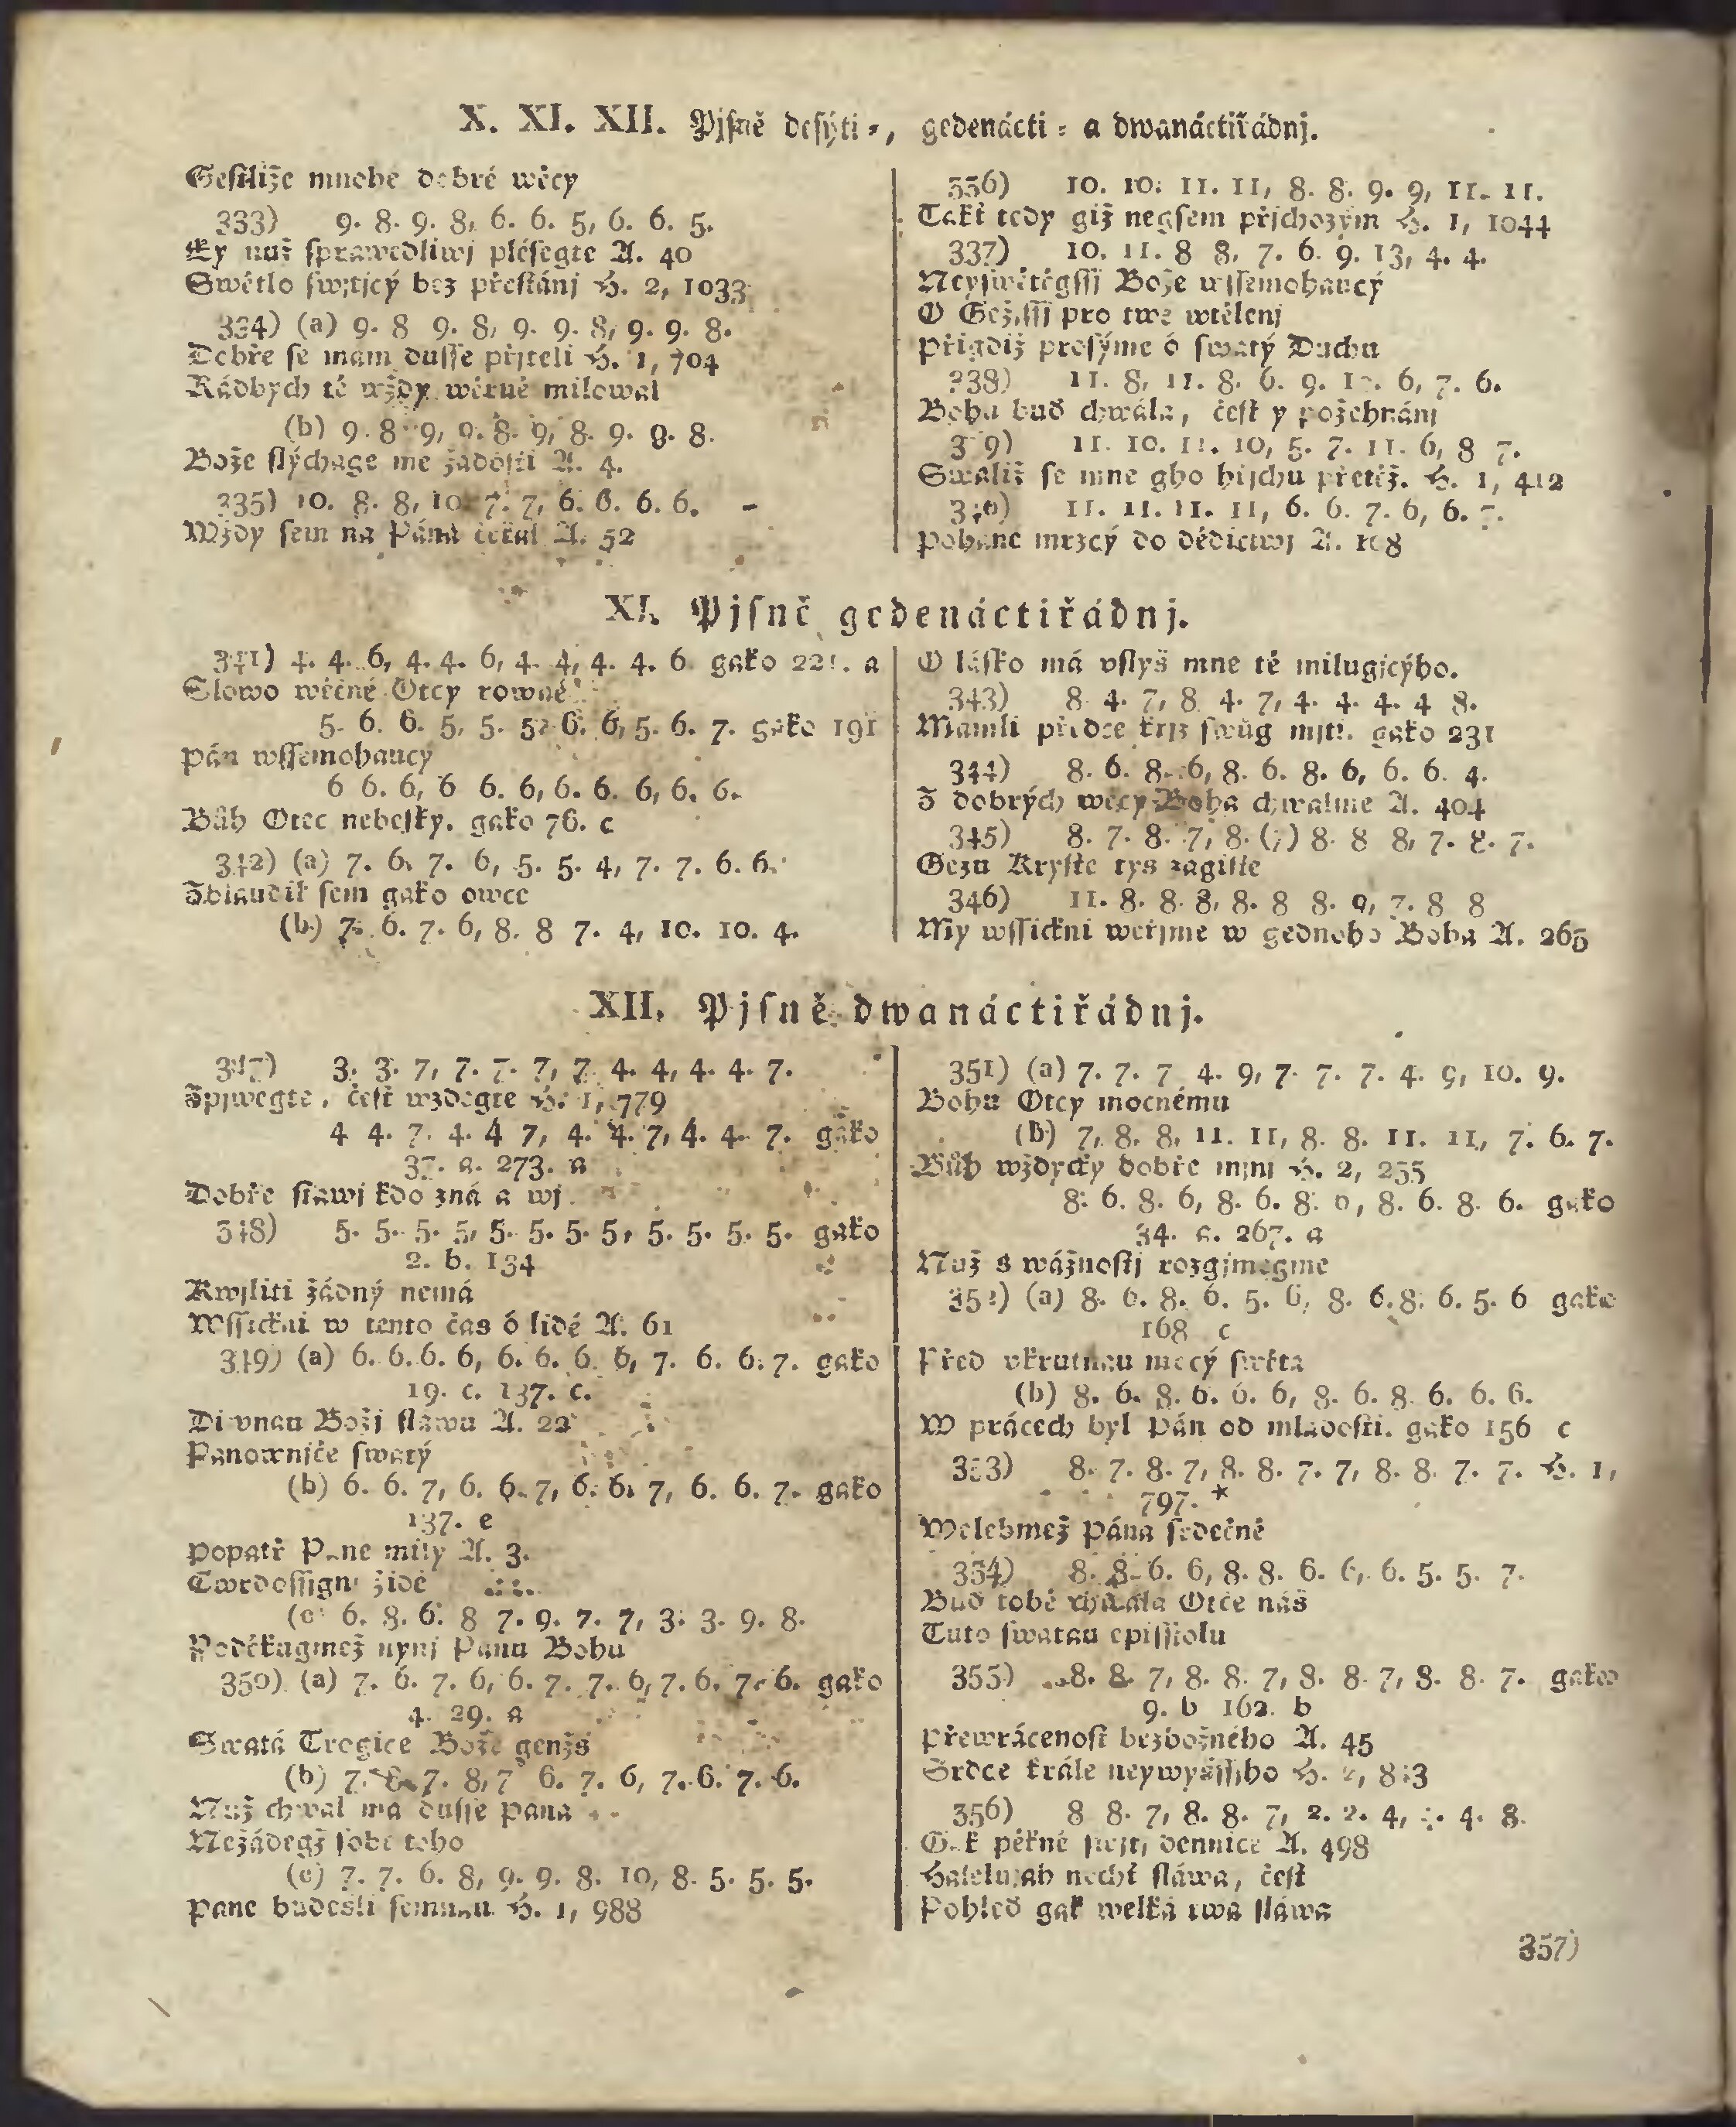 X. XI. XII. Pjſně deſýti-, gedenácti- a dwanáctiřádnj.
Geſtliže mnohe dobré wěcy
333) 9. 8. 9. 8, 6. 6. 5, 6. 6. 5.
Ey nuž ſprawedliwj pléſegte A. 40
Swětlo ſwjtjcý bez přeſtánj H. 2, 1033
334) (a) 9. 8 9. 8, 9. 9. 8, 9. 9. 8.
Dobře ſe mám duſſe přjteli H. 1, 704
Rádbych tě wždy wěrně milowal
(b) 9. 8. 9, 9. 8. 9, 8. 9. 9. 8.
Bože ſlýchage mé žádoſti A. 4.
335) 10. 8. 8, 10. 7. 7, 6. 6. 6. 6.
Wždy ſem na Pána čekal A. 52
336) 10. 10. 11. 11, 8. 8. 9. 9, 11. 11.
Takť tedy giž negſem přjchozým H. 1, 1044
337) 10. 11. 8 8, 7. 6. 9. 13, 4. 4.
Neyſwětěgſſj Bože wſſemohaucý
O Gežjſſj pro twé wtělenj
Přigdiž proſýme ó ſwatý Duchu
338) 11. 8, 11. 8. 6. 9. 6, 7. 6.
Bohu buď chwála, čeſt y požehnánj
339) 11. 10. 11. 10, 5. 7. 11. 6, 8 7.
Swališ ſe mne gho hřjchu přetěž. H. 1, 412
340) 11. 11. 11. 11, 6. 6. 7. 6, 6. 7.
Pohané mrzcý do dědictwj A. 108
XI. Pjſně gedenáctiřádnj.
341) 4. 4. 6, 4. 4. 6, 4. 4, 4. 4. 6 gako 221. a
Slowo wěčné Otcy rowné
5. 6. 6. 5, 5. 5. 6. 6, 5. 6. 7. gako 191
Pán wſſemohaucý
6 6. 6, 6 6. 6, 6. 6. 6, 6. 6.
Bůh Otec nebeſký. gako 76. c
342) (a) 7. 6. 7. 6, 5. 5. 4, 7. 7. 6. 6.
Zblaudil ſem gako owce
(b) 7. 6. 7. 6, 8. 8 7. 4, 10. 10. 4.
O láſko má vſlyš mne tě milugjcýho.
343) 8. 4. 7, 8. 4. 7, 4. 4. 4. 4 8.
Mámli předce křjž ſwůg mjti. gako 231
344) 8. 6. 8. 6, 8. 6. 8. 6, 6. 6. 4.
Z dobrých wěcy Boha chwalme A. 404
345) 8. 7. 8. 7, 8. (7) 8. 8 8, 7. 8. 7.
Gezu Kryſte tys zagiſte
346) 11. 8. 8. 8, 8. 8 8. 9, 7. 8 8
My wſſickni wěřjme w gednoho Boha A. 265
XII. Pjſně dwanáctiřádnj.
347) 3. 3. 7, 7. 7. 7, 7. 4. 4, 4. 4. 7.
Zpjwegte, čeſt wzdegte H. 1, 779
4 4. 7. 4. 4 7, 4. 4. 7, 4. 4. 7. gako
37. a. 273. a
Dobře ſtawj kdo zná a wj
348) 5. 5. 5. 5, 5. 5. 5. 5, 5. 5. 5. 5. gako
2. b. 134
Kwjliti žádný nemá
Wſſickni w tento čas ó lidé A. 61
349) (a) 6. 6. 6. 6, 6. 6. 6. 6, 7. 6. 6. 7. gako
19. c. 137. c.
Diwnau Božj ſláwu A. 22
Panownjče ſwatý
(b) 6. 6. 7, 6. 6. 7, 6. 6. 7, 6. 6. 7. gako
137. e
Popatř Pane milý A. 3.
Twrdoſſignj židé
(c) 6. 8. 6. 8 7. 9. 7. 7, 3. 3. 9. 8.
Poděkugmež nynj Pánu Bohu
350) (a) 7. 6. 7. 6, 6. 7. 7. 6, 7. 6. 7. 6. gako
4. 29. a
Swatá Trogice Bože genžs
(b) 7. 6. 7. 8, 7 6. 7. 6, 7. 6. 7. 6.
Nuž chwal má duſſe Pána
Nežádegž ſobě toho
(c) 7. 7. 6. 8, 9. 9. 8. 10, 8. 5. 5. 5.
Pane budešli ſemnau H. 1, 988
351) (a) 7. 7. 7 4. 9, 7. 7. 7. 4. 9, 10. 9.
Bohu Otcy mocnému
(b) 7, 8. 8, 11. 11, 8. 8. 11. 11, 7. 6. 7.
Bůh wždycky dobře mjnj H. 2, 255
8. 6. 8. 6, 8. 6. 8. 6, 8. 6. 8. 6. gako
34. a. 267. a
Nuž s wážnoſtj rozgjmegme
352) (a) 8. 6. 8. 6. 5. 6, 8. 6. 8. 6. 5. 6 gako
168 c
Před vkrutnau mocý ſwěta
(b) 8. 6. 8. 6. 6. 6, 8. 6. 8. 6. 6. 6.
W prácech byl Pán od mladoſti. gako 156 c
353) 8. 7. 8. 7, 8. 8. 7. 7, 8. 8. 7. 7. H. 1,
797. *
Welebmež Pána ſrdečně
354) 8. 8. 6. 6, 8. 8. 6. 6, 6. 5. 5. 7.
Buď tobě chwála Otče náš
Tuto ſwatau epiſſtolu
355) 8. 8. 7, 8. 8. 7, 8. 8. 7, 8. 8. 7. gako
9. b 162. b
Přewrácenoſt bezbožného A. 45
Srdce krále neywyšſſjho H. 813
356) 8 8. 7, 8. 8. 7, 2. 2. 4, 4. 8.
Gak pěkně ſwjtj dennice A. 498
Halelujah nechť ſláwa, čeſt
Pohleď gak welká twá ſláwa
357)